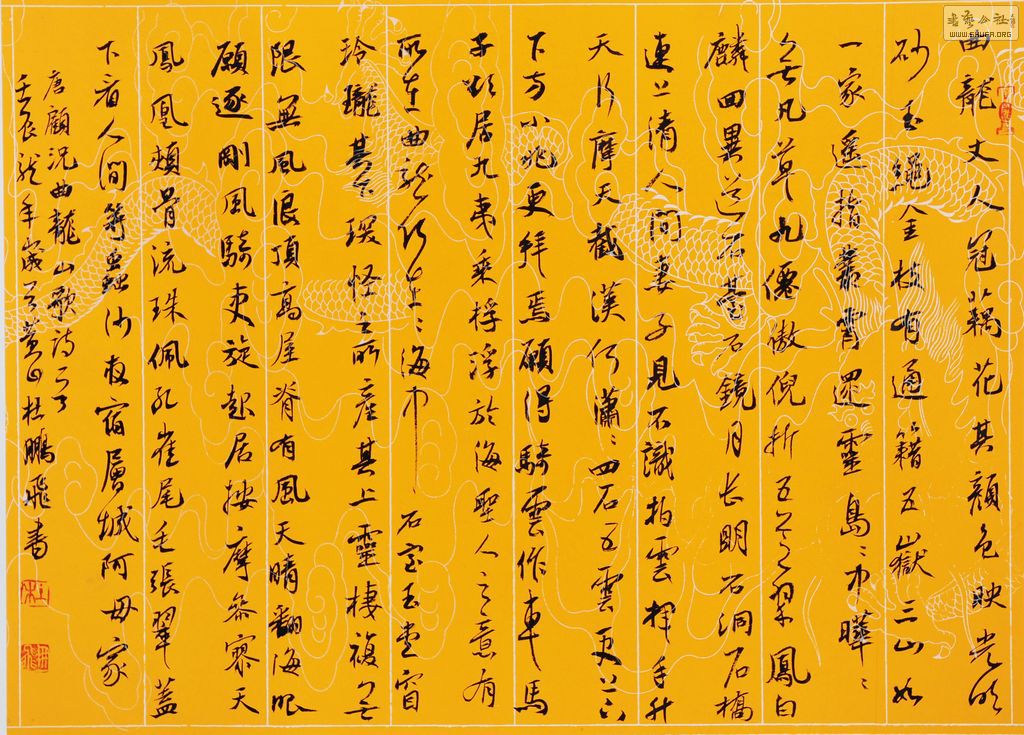 曲龍丈人冠藕花其顏色映光明
砂玉繩金枝有通籍五嶽三山如
一家遙指叢霄還靈島〻中曄〻
無凡草九僊傲倪折五芝翠鳳白
麟回異道石臺石鏡月長明石洞石橋
連上清人間妻子見不識拍雲揮手升
天行摩天截漢何瀟〻四石五雲更上下
下方小兆更拜焉願得騎雲作車馬
子欲居九夷乘桴浮於海聖人之意有
所在曲龍何在〻海中石室玉堂窅
玲瓏其下琛怪之所產其上靈棲複無
限無風浪頂高屋脊有風天晴翻海眼
願逐剛風騎吏旋起居按摩參寥天
鳳凰頰骨流珠佩孔雀尾毛張翠蓋
下看人間等蟲沙夜宿層城阿母家
唐顧況曲龍山歌詩二首
壬辰龍年歲首黃山杜鵬飛書
WWW.SHUFA.ORG